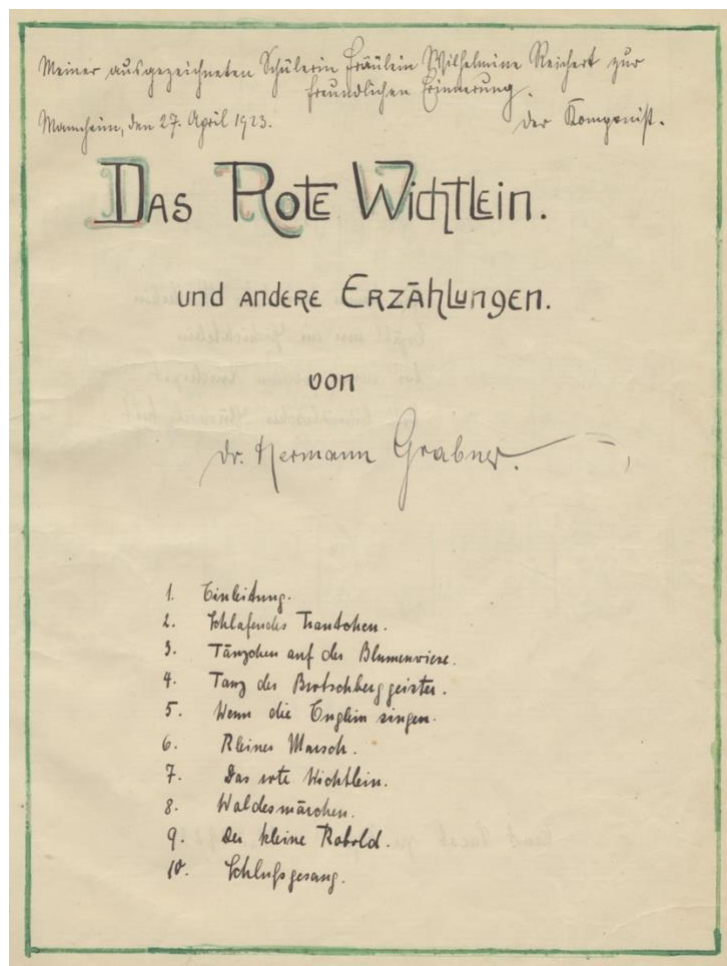 Meiner ausgezeichneten Schülerin Fräulein Wilhelmine Reichert zur
freundlichen Erinnerung.
Mannheim, den 27. April 1923. Der Komponist.
Das Rote Wichtlein.
und andere Erzählungen.
von
Dr. Hermann Grabner.
1. Einleitung.
2. Schlafendes Trautchen.
3. Tänzchen auf der Blumenwiese.
4. Tanz der Brotschberggeister.
5. Wenn die Englein singen.
6. Kleiner Marsch.
7. Das rote Wichtlein.
8. Waldesmärchen.
9. Der kleine Kobold.
10. Schlußgesang.